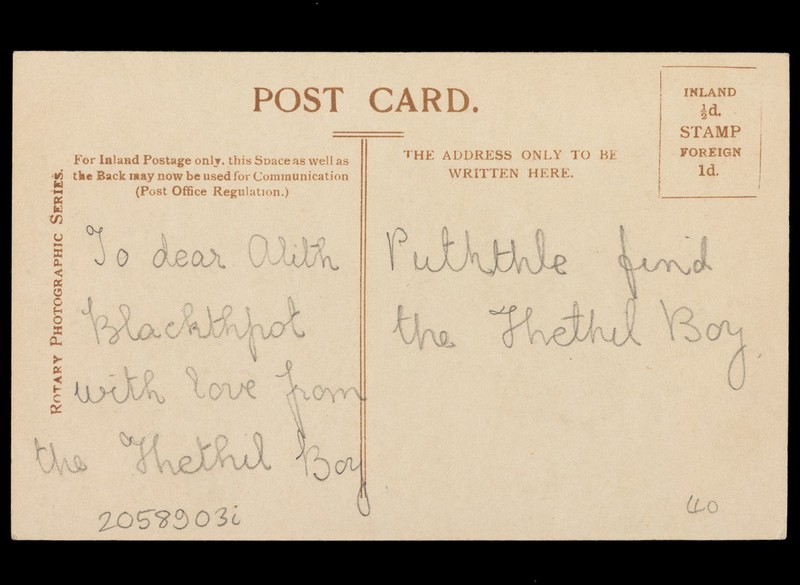 POST CARD.
INLAND
½d.
STAMP
FOREIGN
1d.
For Inland Postage only, this Space as well as
the Back may now be used for Communication
(Post Office Regulation.)
THE ADDRESS ONLY TO BE
WRITTEN HERE.
ROTARY PHOTOGRAPHIC SERIES.
To dear Alith
Blackthpot
with love from
the Thethil Boy
Puththle find
the Thethil Boy.
2058903i
40